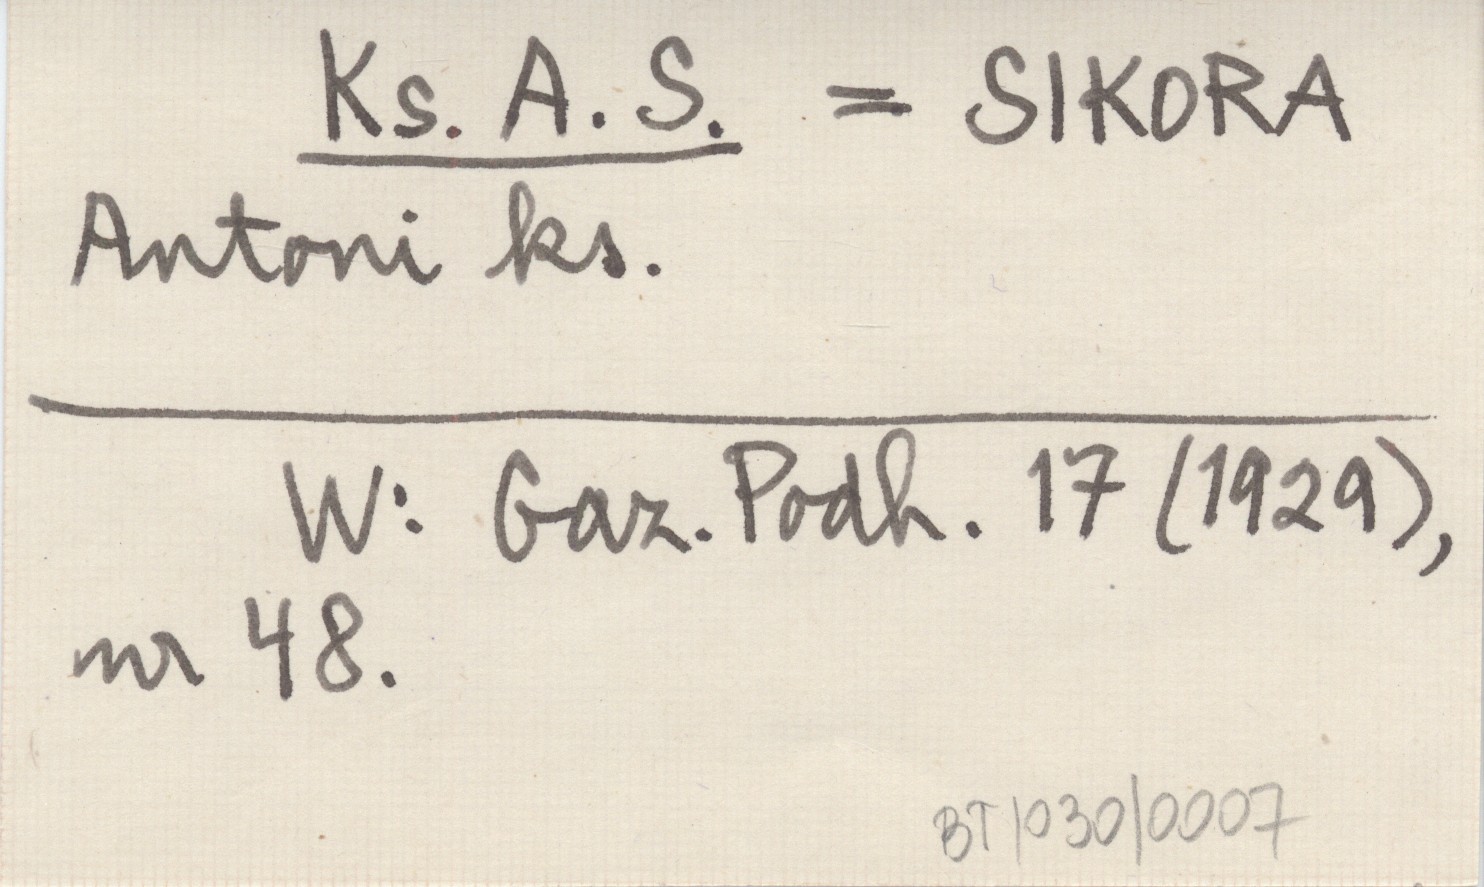 Ks. A. S. = SIKORA
Antoni ks.
W: Gaz. Podh. 17 (1929),
nr 48.
BT/030/0007